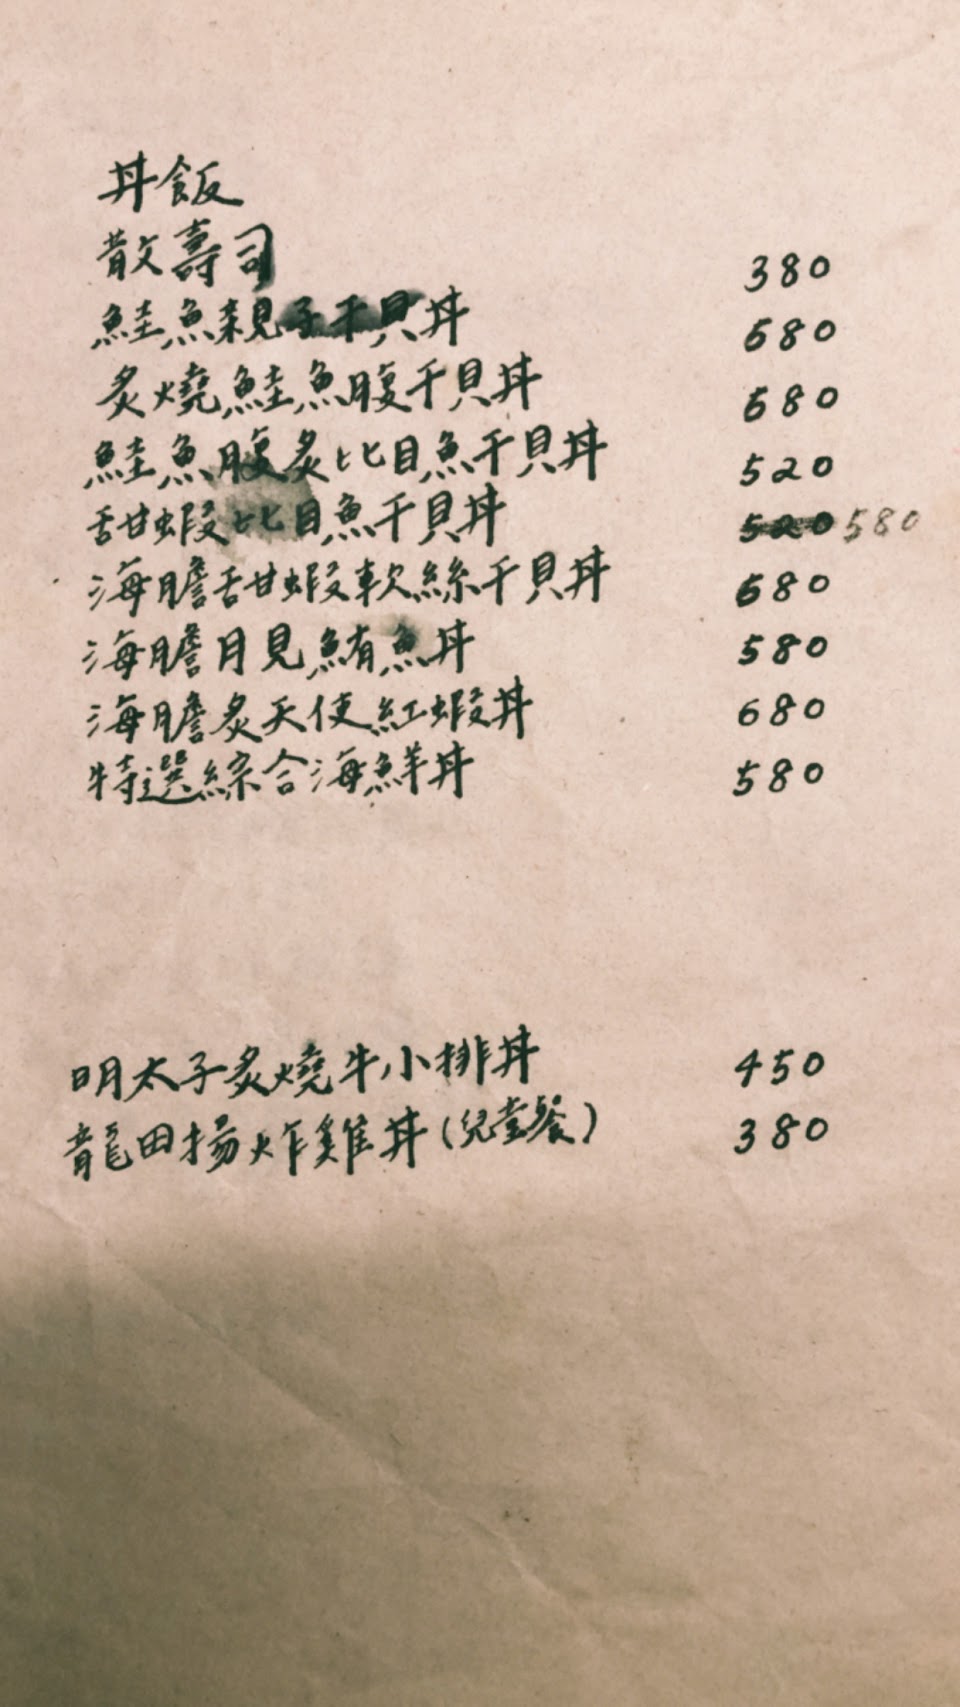 丼飯
散壽司 380
鮭魚親子干貝丼 580
炙燒鮭魚腹干貝丼 580
鮭魚腹炙比目魚干貝丼 520
甜蝦比目魚干貝丼 520 580
海膽甜蝦軟絲干貝丼 680
海膽月見鮪魚丼 580
海膽炙天使紅蝦丼 680
特選綜合海鮮丼 580
明太子炙燒牛小排丼 450
龍田揚炸雞丼(兒童餐) 380